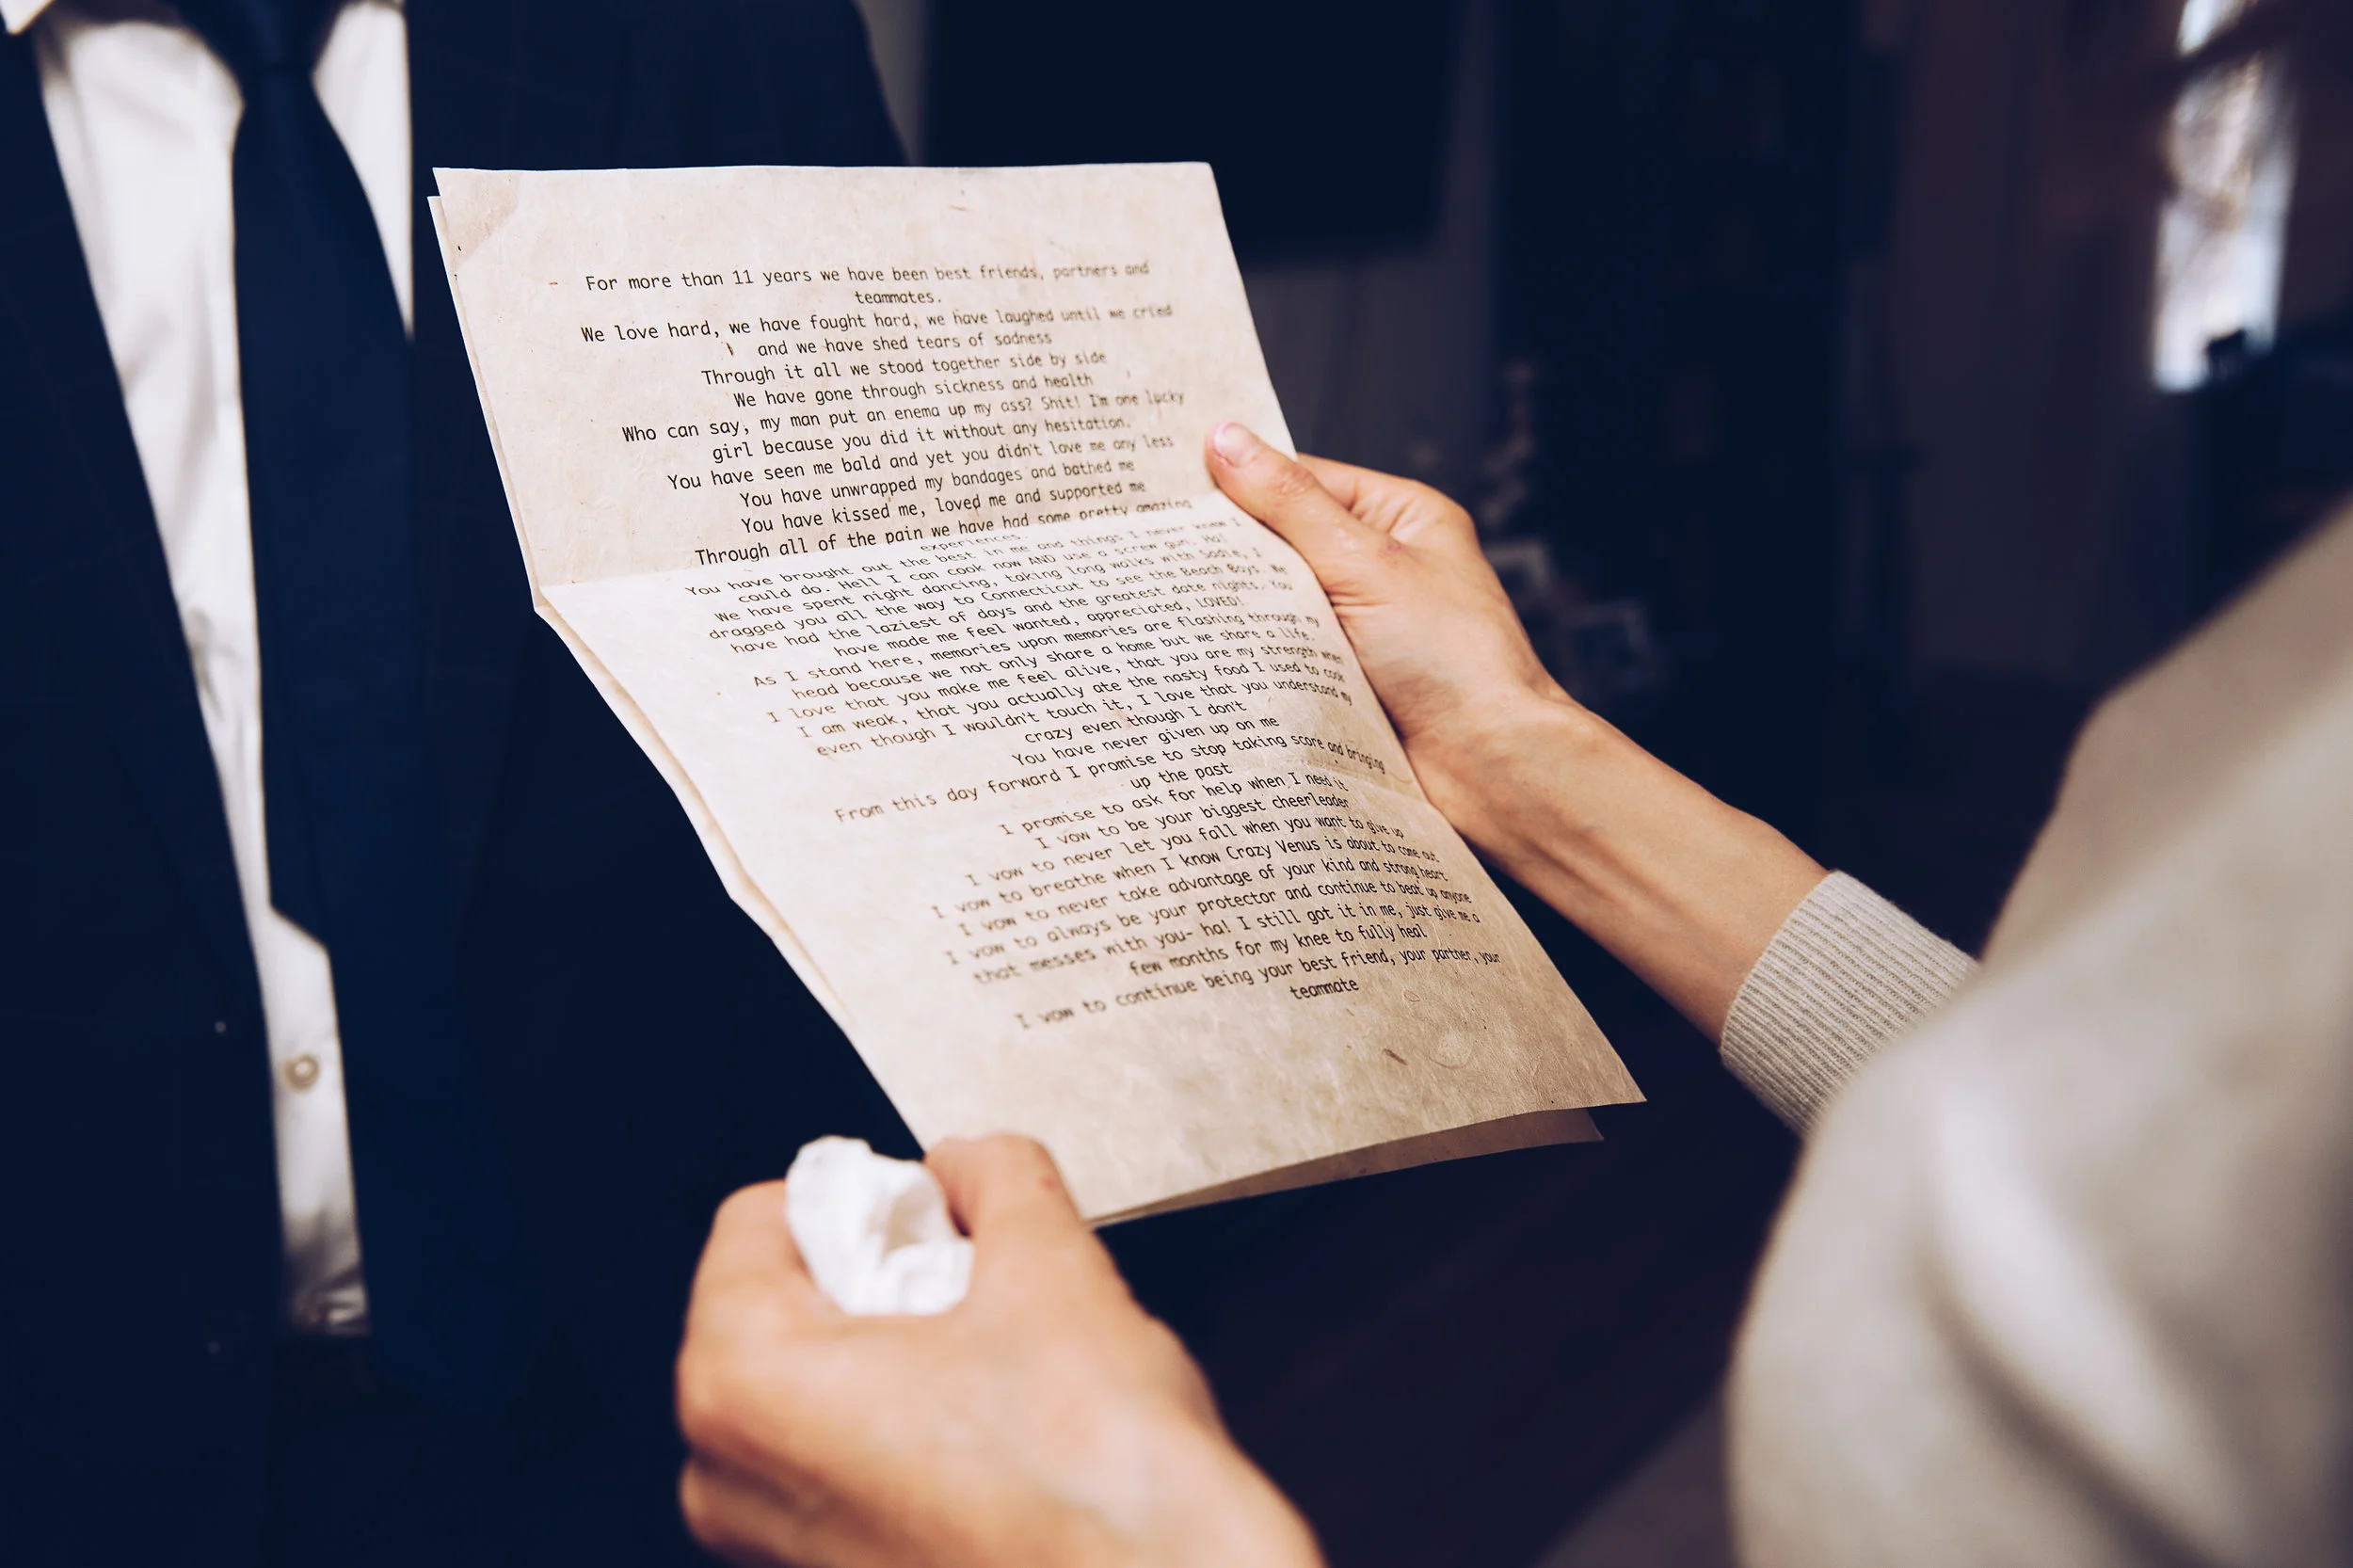 For more than 11 years we have been best friends, partners and
teammates.
We love hard, we have fought hard, we have laughed until we cried
and we have shed tears of sadness
Through it all we stood together side by side
We have gone through sickness and health
Who can say, my man put an enema up my ass? Shit! I'm one lucky
girl because you did it without any hesitation.
You have seen me bald and yet you didn't love me any less
You have unwrapped my bandages and bathed me
You have kissed me, loved me and supported me
Through all of the pain we have had some pretty amazing
experiences.
You have brought out the best in me and things I never knew I
could do. Hell I can cook now AND use a screw gun. Ha!
We have spent night dancing, taking long walks with Sadie, I
dragged you all the way to Connecticut to see the Beach Boys. We
have had the laziest of days and the greatest date nights. You
have made me feel wanted, appreciated, LOVED!
As I stand here, memories upon memories are flashing through my
head because we not only share a home but we share a life.
I love that you make me feel alive, that you are my strength when
I am weak, that you actually ate the nasty food I used to cook
even though I wouldn't touch it, I love that you understand my
crazy even though I don't
You have never given up on me
From this day forward I promise to stop taking score and bringing
up the past
I promise to ask for help when I need it
I vow to be your biggest cheerleader
I vow to never let you fall when you want to give up
I vow to breathe when I know Crazy Venus is about to come out
I vow to never take advantage of your kind and strong heart
I vow to always be your protector and continue to beat up anyone
that messes with you- ha! I still got it in me, just give me a
few months for my knee to fully heal
I vow to continue being your best friend, your partner, your
teammate